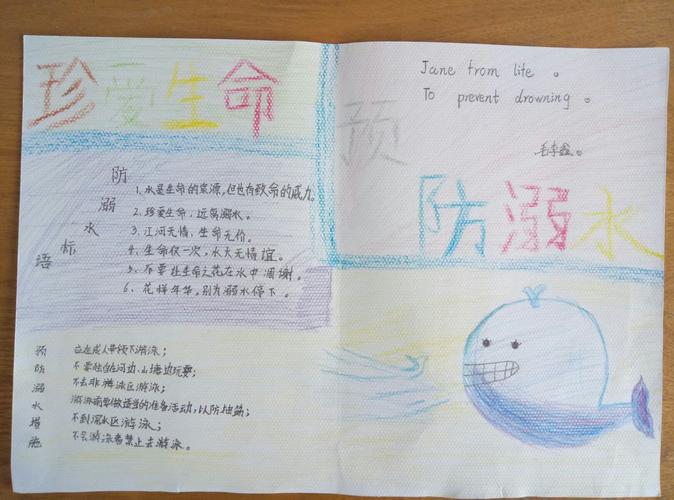 珍爱生命
防溺水标语
1、水是生命的来源,但也有致命的威力。
2、珍爱生命,远离溺水。
3、江河无情,生命无价。
4、生命仅一次,水火无情谊。
5、不要让生命之花在水中凋谢。
6、花样年华,别为溺水停下。
预防溺水
应在成人带领下游泳;
不要独自在河边、山塘边玩耍;
不去非游泳区游泳;
游泳前要做适当的准备活动,以防抽筋;
不到深水区游泳;
不会游泳者禁止去游泳。
Jane from life 。
To prevent drowning 。
预
防溺水